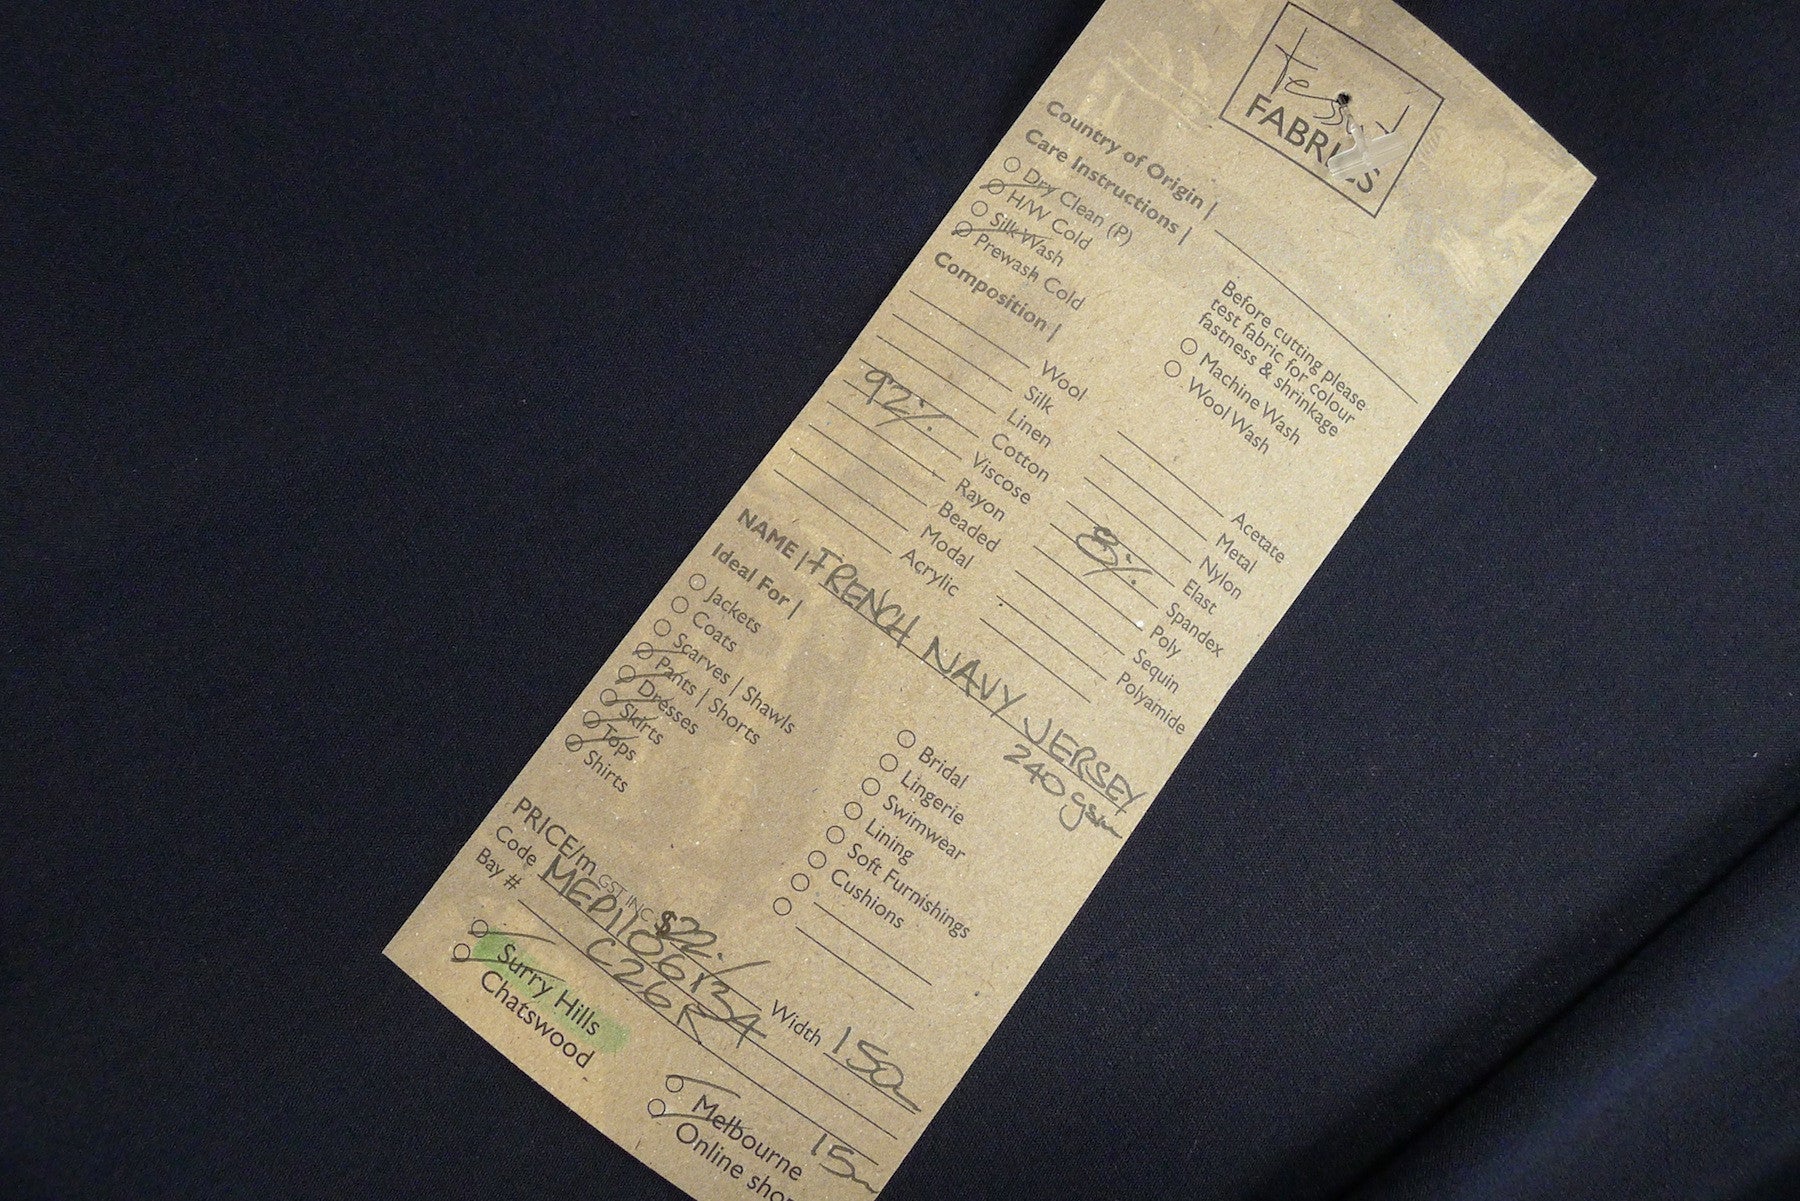 Tessuti
FABRICS
Country of Origin |
Care Instructions |
Dry Clean (P)
H/W Cold
Silk Wash
Prewash Cold
Before cutting please
test fabric for colour
fastness & shrinkage
Machine Wash
Wool Wash
Composition |
Wool
Silk
Linen
Cotton
92% Viscose
Rayon
Beaded
Modal
Acrylic
Acetate
Metal
Nylon
Elast
8% Spandex
Poly
Sequin
Polyamide
NAME | FRENCH NAVY JERSEY
240gsm
Ideal For |
Jackets
Coats
Scarves | Shawls
Pants | Shorts
Dresses
Skirts
Tops
Shirts
Bridal
Lingerie
Swimwear
Lining
Soft Furnishings
Cushions
PRICE/m GST INC $22.
Code Width 150
Bay # C26R
15m
Surry Hills
Chatswood
Melbourne
Online